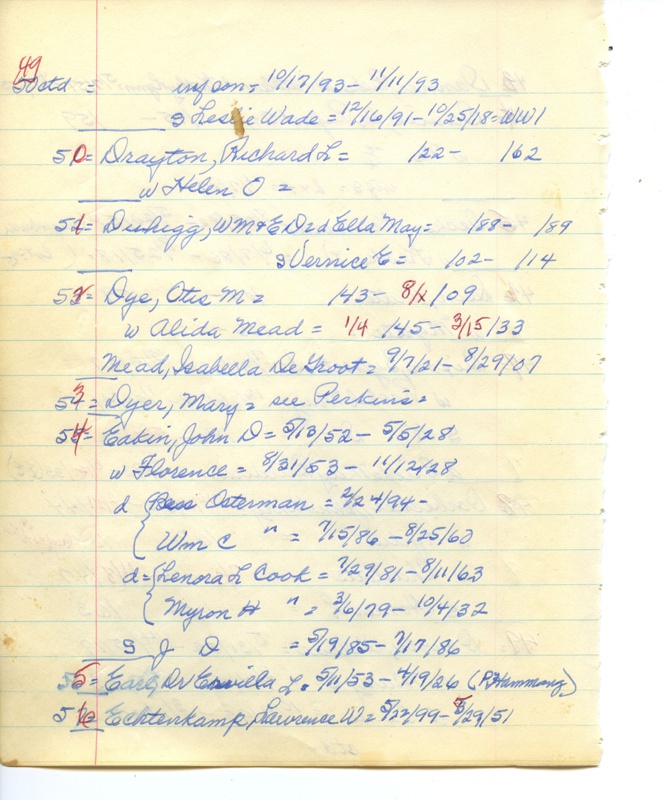 49
50ctd = inf son = 10/17/93 - 11/11/93
s Leslie Wade = 12/16/91 - 10/25/18 = WW1
50 = Drayton, Richard L = /22 - /62
w Helen O =
51 = Duhigg, WM & E D = d Ella May = /88 - /89
s Vernice E = /02 - /14
52 = Dye, Otis M = /43 - 8/ /09
w Alida Mead = 1/4 /45 - 3/15/33
Mead, Isabella De Groot = 9/7/21 - 8/29/07
53 = Dyer, Mary = see Perkins =
54 = Eakin, John D = 5/13/52 - 5/5/28
w Florence = 8/31/53 - 11/12/28
d { Bess Osterman = 2/24/94 -
Wm C " = 7/15/86 - 8/25/60
d = { Lenora L Cook = 7/29/81 - 8/11/63
Myron H " = 3/6/79 - 10/4/32
s J D = 5/19/85 - 7/17/86
55 = Earl, Dr L = 5/11/53 - 4/19/26 (P.Hammong)
56 = Echtenkamp, Lawrence W = 5/22/99 - 5/29/51